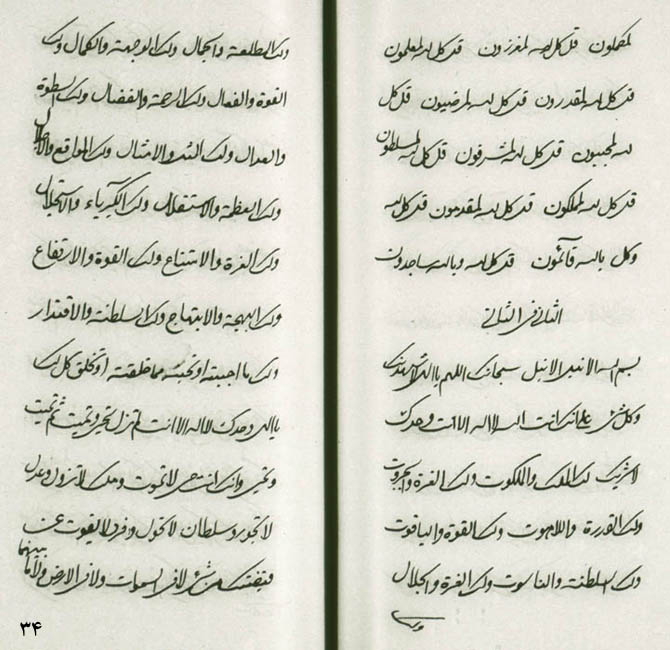 لمكملون قل كل له لمعززون قل كل له لمعلمون
قل كل له لمقدرون قل كل له لمرضيون قل كل
له لمحببون قل كل له لمشرفون قل كل له لمسلطون
قل كل له لمملكون قل كل له لمقدمون قل كل له
وكل بالله قائمون قل كل له وبالله ساجدون
الثاني في الثاني
بسم الله الانبل الانبل سبحانك اللهم يا الهي لاشهدنك
وكل شيء على انك انت الله لا اله الا انت وحدك
لا شريك لك الملك والملكوت ولك العزة والجبروت
ولك القدرة واللاهوت ولك القوة والياقوت
ولك السلطنة والناسوت ولك العزة والجلال
ولك الطلعة والجمال ولك الوجهة والكمال ولك
القوة والفعال ولك الرحمة والفضال ولك السطوة
والعدال ولك المثل والامثال ولك المواقع والاجلال
ولك العظمة والاستقلال ولك الكبرياء والاستجلال
ولك العزة والامتناع ولك القوة والارتفاع
ولك البهجة والابتهاج ولك السلطنة والاقتدار
ولك ما احببته او تحبنه مما خلقته او تخلق كل لك
يا الهي وحدك لا اله الا انت لم تزل تحيي وتميت ثم تميت
وتحيي وانك انت حي لا تموت وملك لا تزول وعدل
لا تجور وسلطان لا تحول وفرد لا يفوت عن
قبضتك من شيء لا في السموات ولا في الارض ولا ما بينهما
٣٤